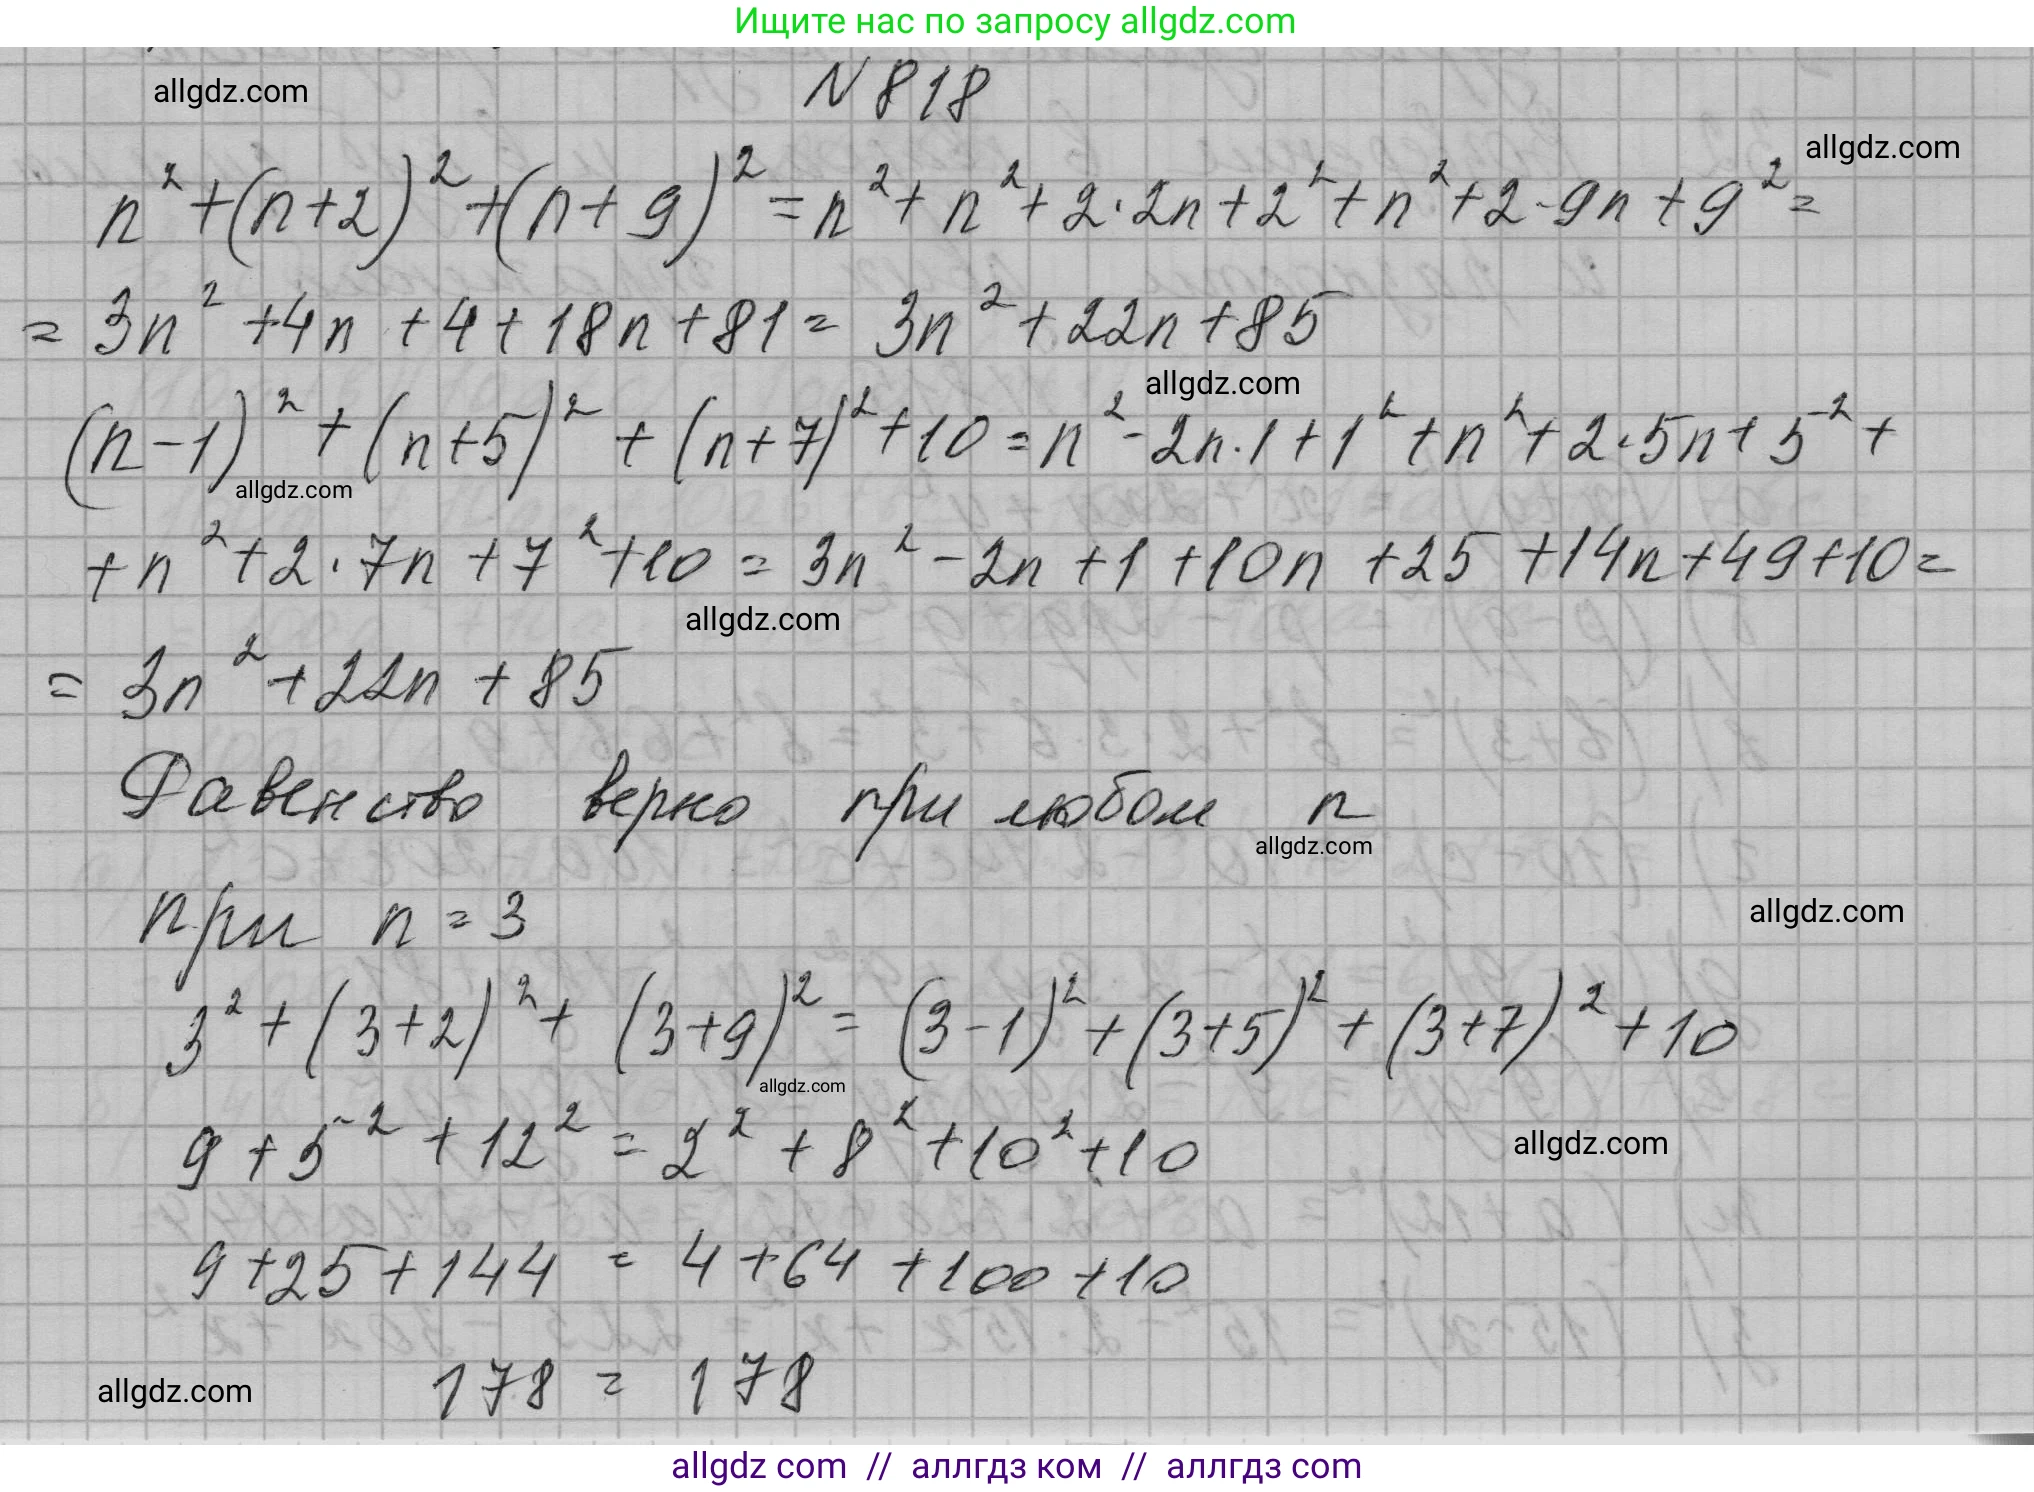 Ищите нас по запросу allgdz.com
allgdz.com
N 818
allgdz.com
n² + (n+2)² + (n+9)² = n² + n² + 2·2n + 2² + n² + 2·9n + 9² =
= 3n² + 4n + 4 + 18n + 81 = 3n² + 22n + 85
allgdz.com
(n-1)² + (n+5)² + (n+7)² + 10 = n² - 2n·1 + 1² + n² + 2·5n + 5² +
allgdz.com
+ n² + 2·7n + 7² + 10 = 3n² - 2n + 1 + 10n + 25 + 14n + 49 + 10 =
allgdz.com
= 3n² + 22n + 85
Равенство верно при любом n
allgdz.com
при n = 3
allgdz.com
3² + (3+2)² + (3+9)² = (3-1)² + (3+5)² + (3+7)² + 10
allgdz.com
9 + 5² + 12² = 2² + 8² + 10² + 10
allgdz.com
9 + 25 + 144 = 4 + 64 + 100 + 10
178 = 178
allgdz.com
allgdz com // аллгдз ком // аллгдз com